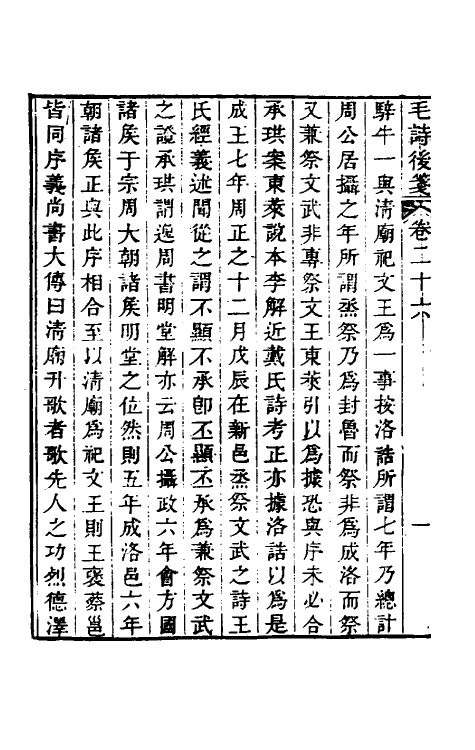 毛詩後箋 卷二十六 一
騂牛一與清廟祀文王爲一事按洛誥所謂七年乃總計
周公居攝之年所謂烝祭乃爲封魯而祭非爲成洛而祭
又兼祭文武非專祭文王東萊引以爲據恐與序未必合
承珙案東萊說本李解近戴氏詩考正亦據洛誥以爲是
成王七年周正之十二月戊辰在新邑烝祭文武之詩王
氏經義述聞從之謂不顯不承卽丕顯丕承爲兼祭文武
之證承珙謂逸周書明堂解亦云周公攝政六年會方國
諸侯于宗周大朝諸侯明堂之位然則五年成洛邑六年
朝諸侯正與此序相合至以清廟爲祀文王則王褒蔡邕
皆同序義尚書大傳曰清廟升歌者歌先人之功烈德澤